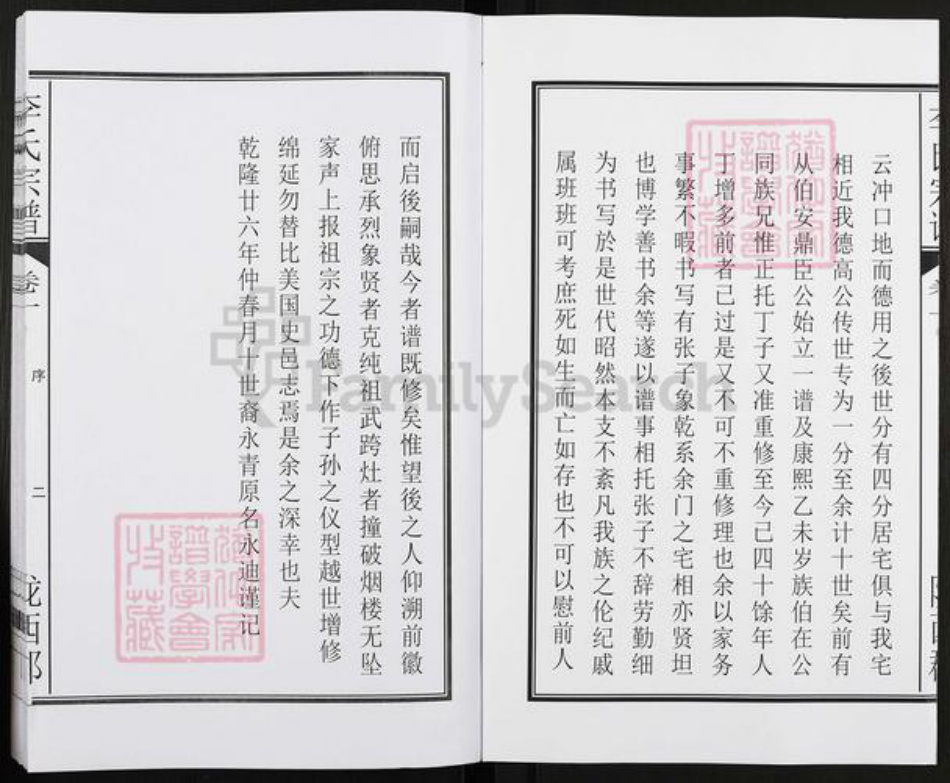 云冲口地而德用之後世分有四分居宅俱与我宅
相近我德高公传世专为一分至余计十世矣前有
从伯安鼎臣公始立一谱及康熙乙未岁族伯在公
同族兄惟正托丁子又准重修至今已四十馀年人
丁增多前者己过是又不可不重修理也余以家务
事繁不暇书写有张子象乾系余门之宅相亦贤坦
也博学善书余等遂以谱事相托张子不辞劳勤细
为书写於是世代昭然本支不紊凡我族之伦纪戚
属班班可考庶死如生而亡如存也不可以慰前人
而启後嗣哉今者谱既修矣惟望後之人仰溯前徽
俯思承烈象贤者克纯祖武跨灶者撞破烟楼无坠
家声上报祖宗之功德下作子孙之仪型越世增修
绵延勿替比美国史邑志焉是余之深幸也夫
乾隆廿六年仲春月十世裔永青原名永迪谨记
李氏宗谱
卷一
序
二
陇西郡
FamilySearch